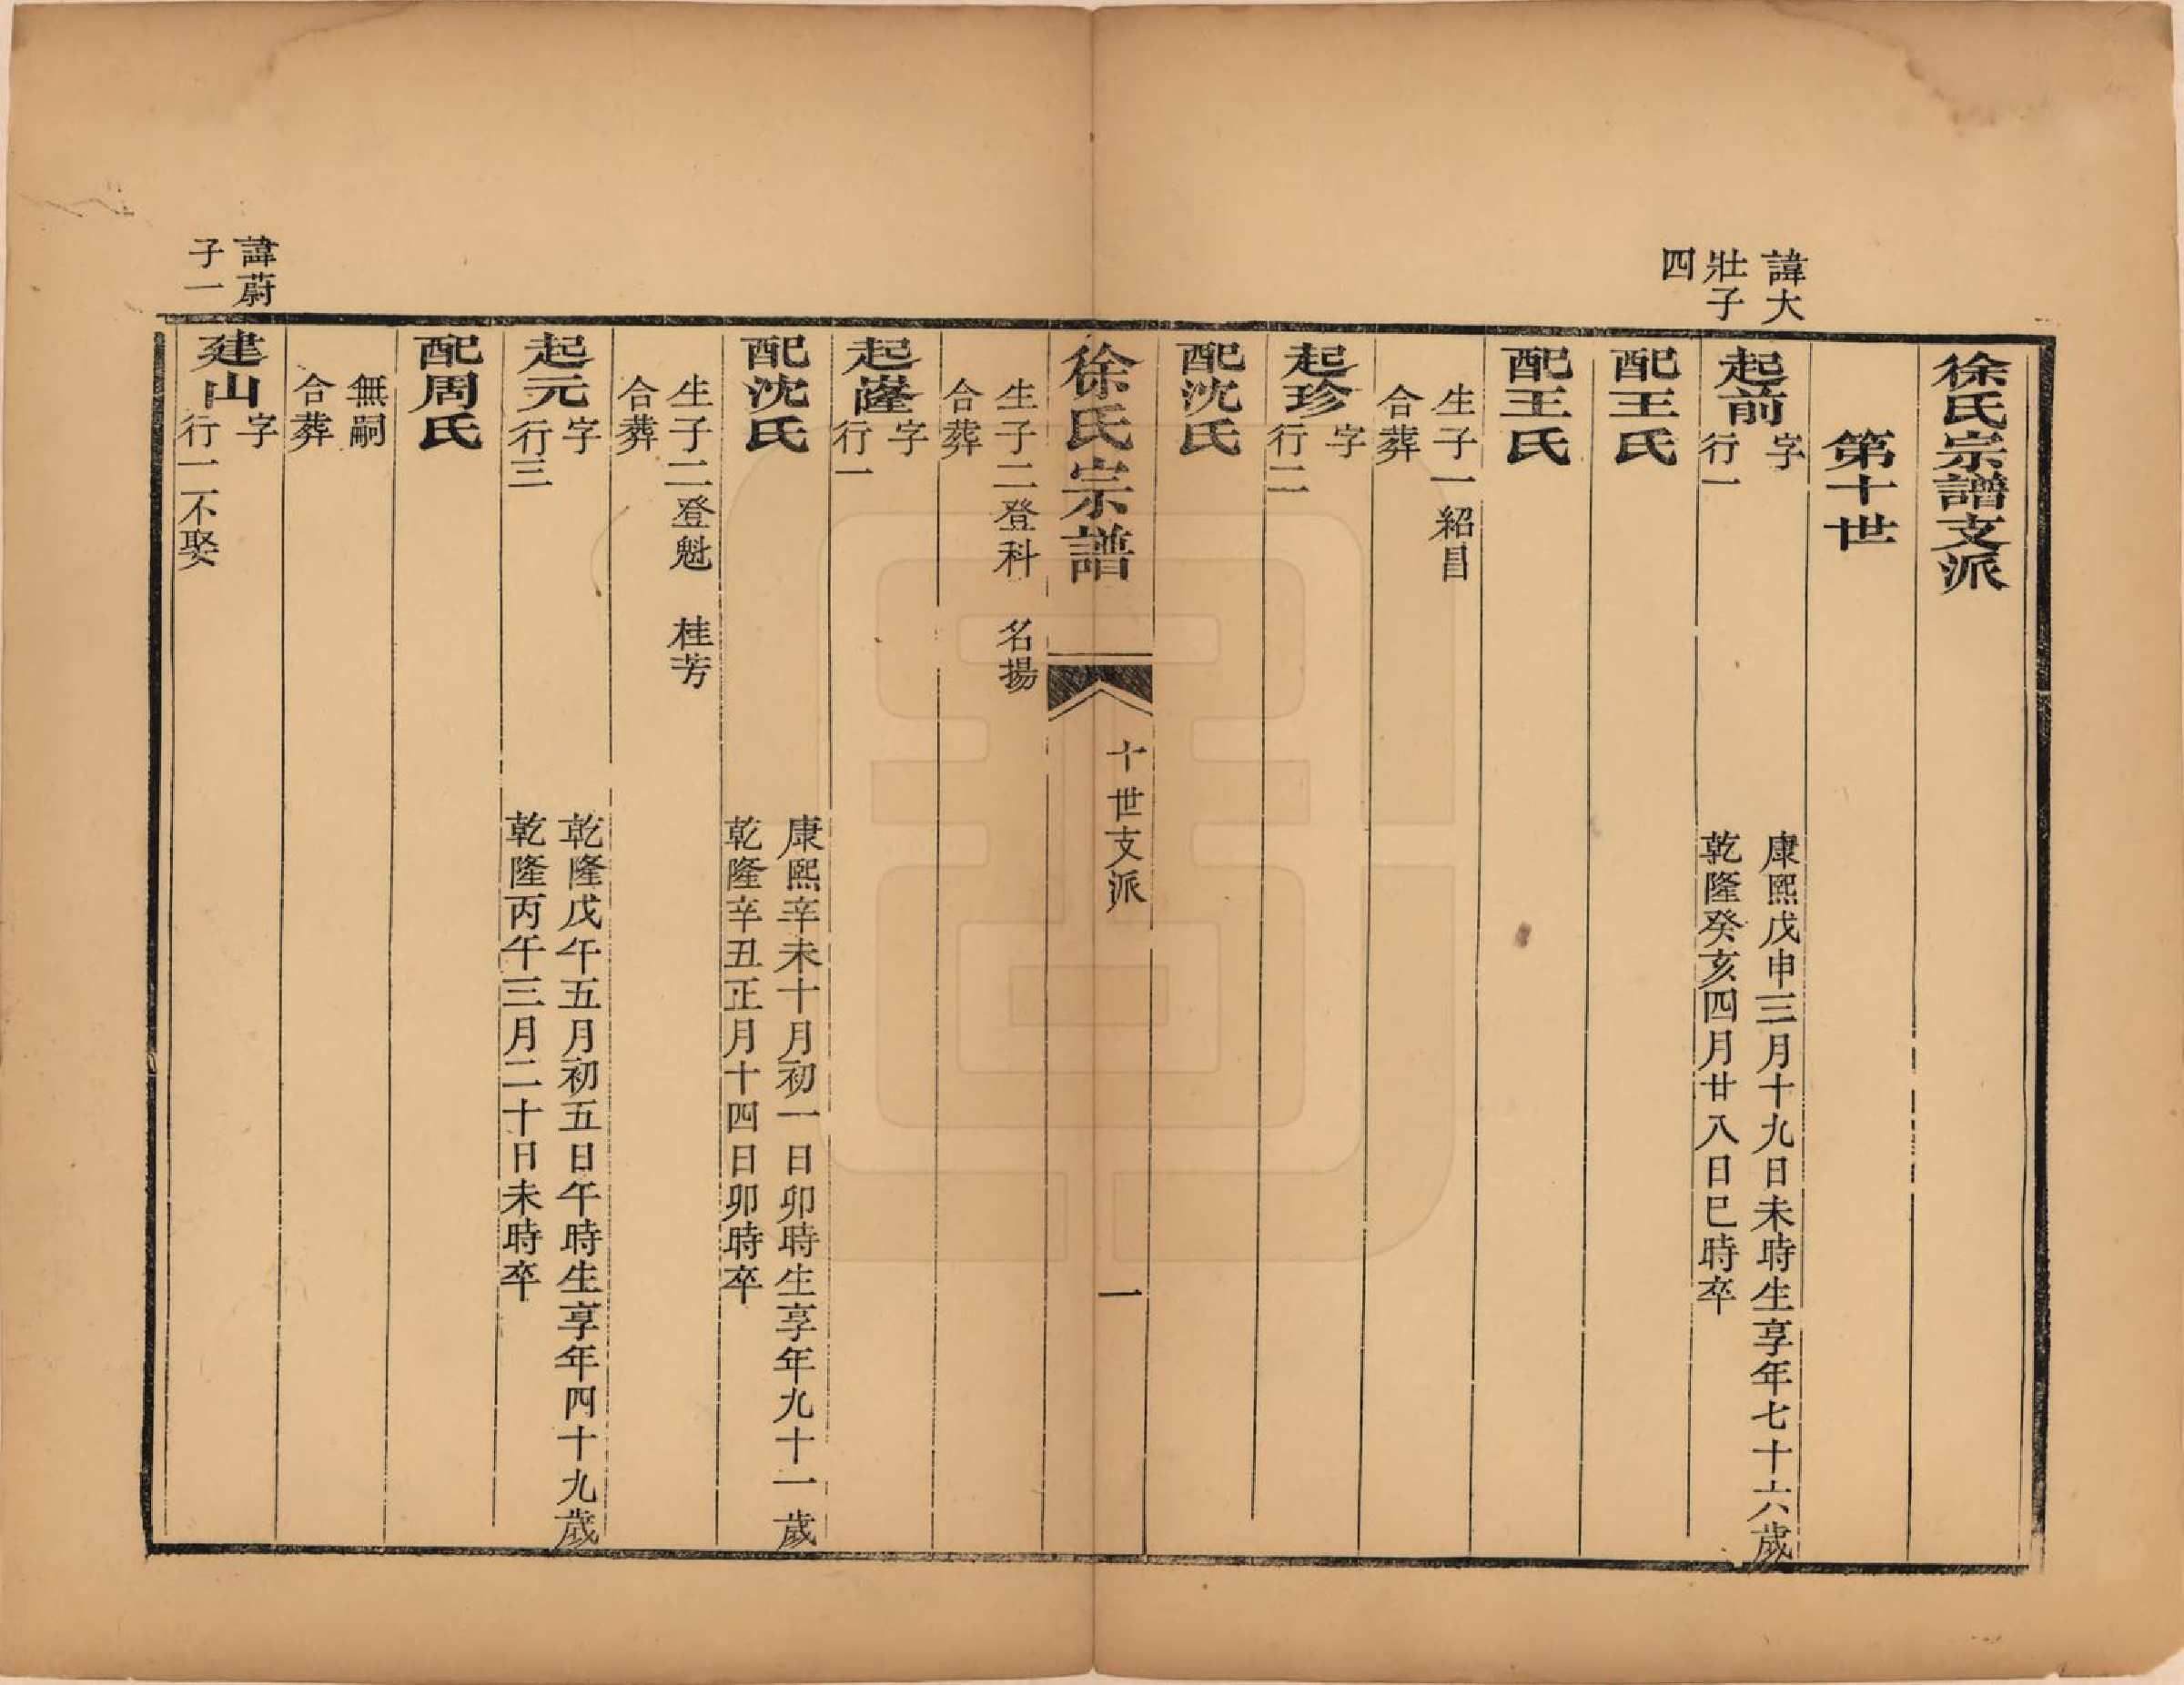 徐氏宗譜支派
第十世
諱大
壯子
四
起前
字
行一
康熙戊申三月十九日未時生享年七十六歲
乾隆癸亥四月廿八日巳時卒
配王氏
配王氏
生子一紹昌
合葬
起珍
字
行二
配沈氏
徐氏宗譜
十世支派
一
生子二登科 名揚
合葬
起蓬
字
行一
康熙辛未十月初一日卯時生享年九十一歲
乾隆辛丑正月十四日卯時卒
配沈氏
生子二登魁 桂芳
合葬
起元
字
行三
乾隆戊午五月初五日午時生享年四十九歲
乾隆丙午三月二十日未時卒
配周氏
無嗣
合葬
諱蔚
子一
建山
字
行一不娶